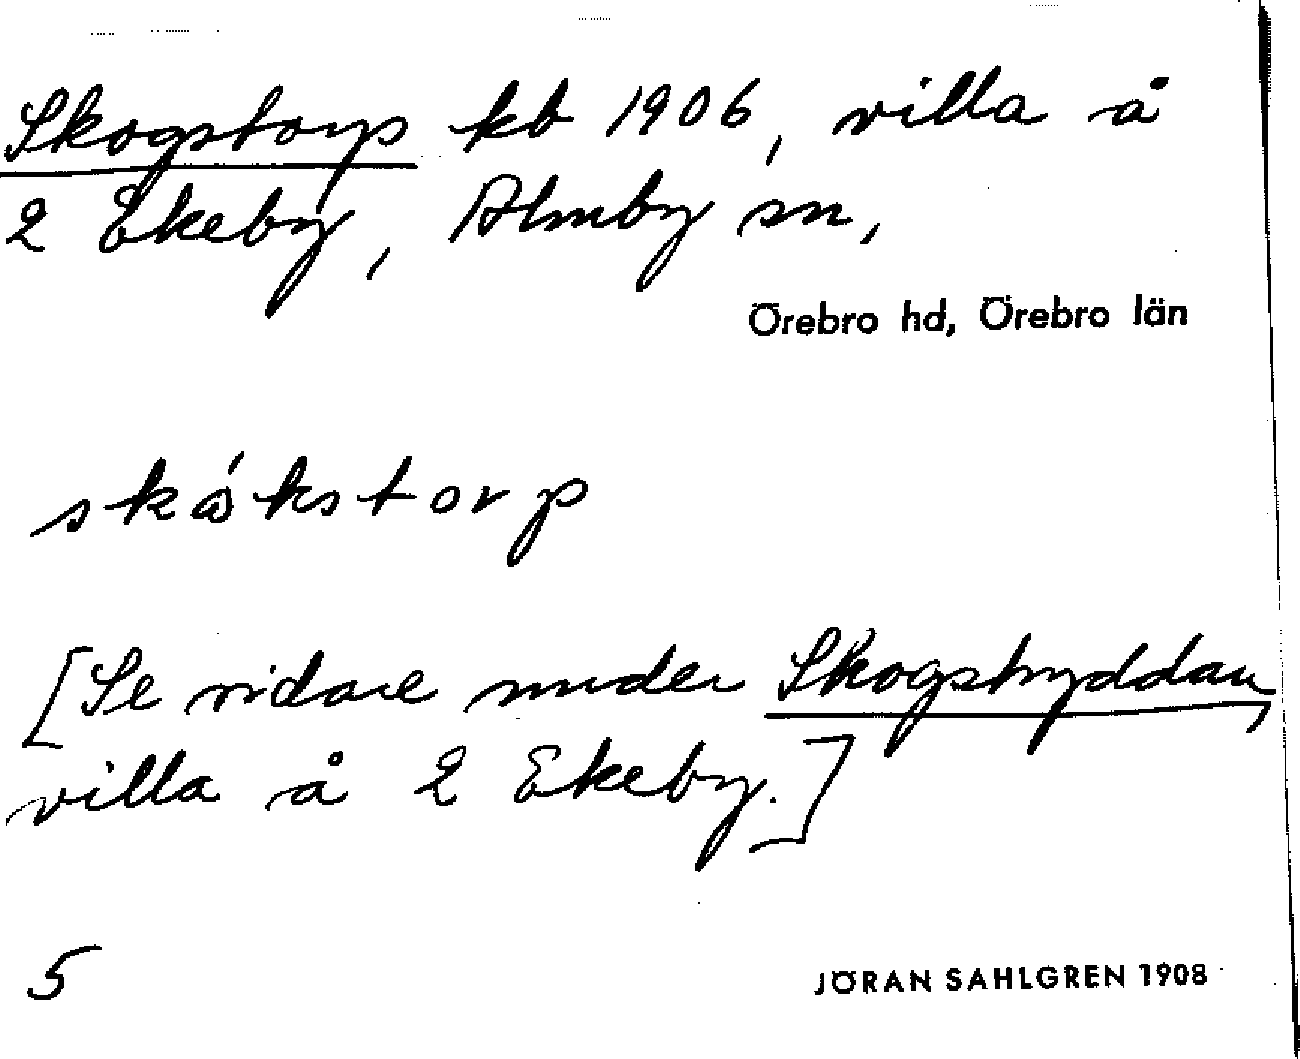 Skogstorp kb 1906, villa å
2 Ekeby, Almby sn,
Örebro hd, Örebro län
skåkstorp
[Se vidare under Skogshyddan,
villa å 2 Ekeby.]
5
JÖRAN SAHLGREN 1908